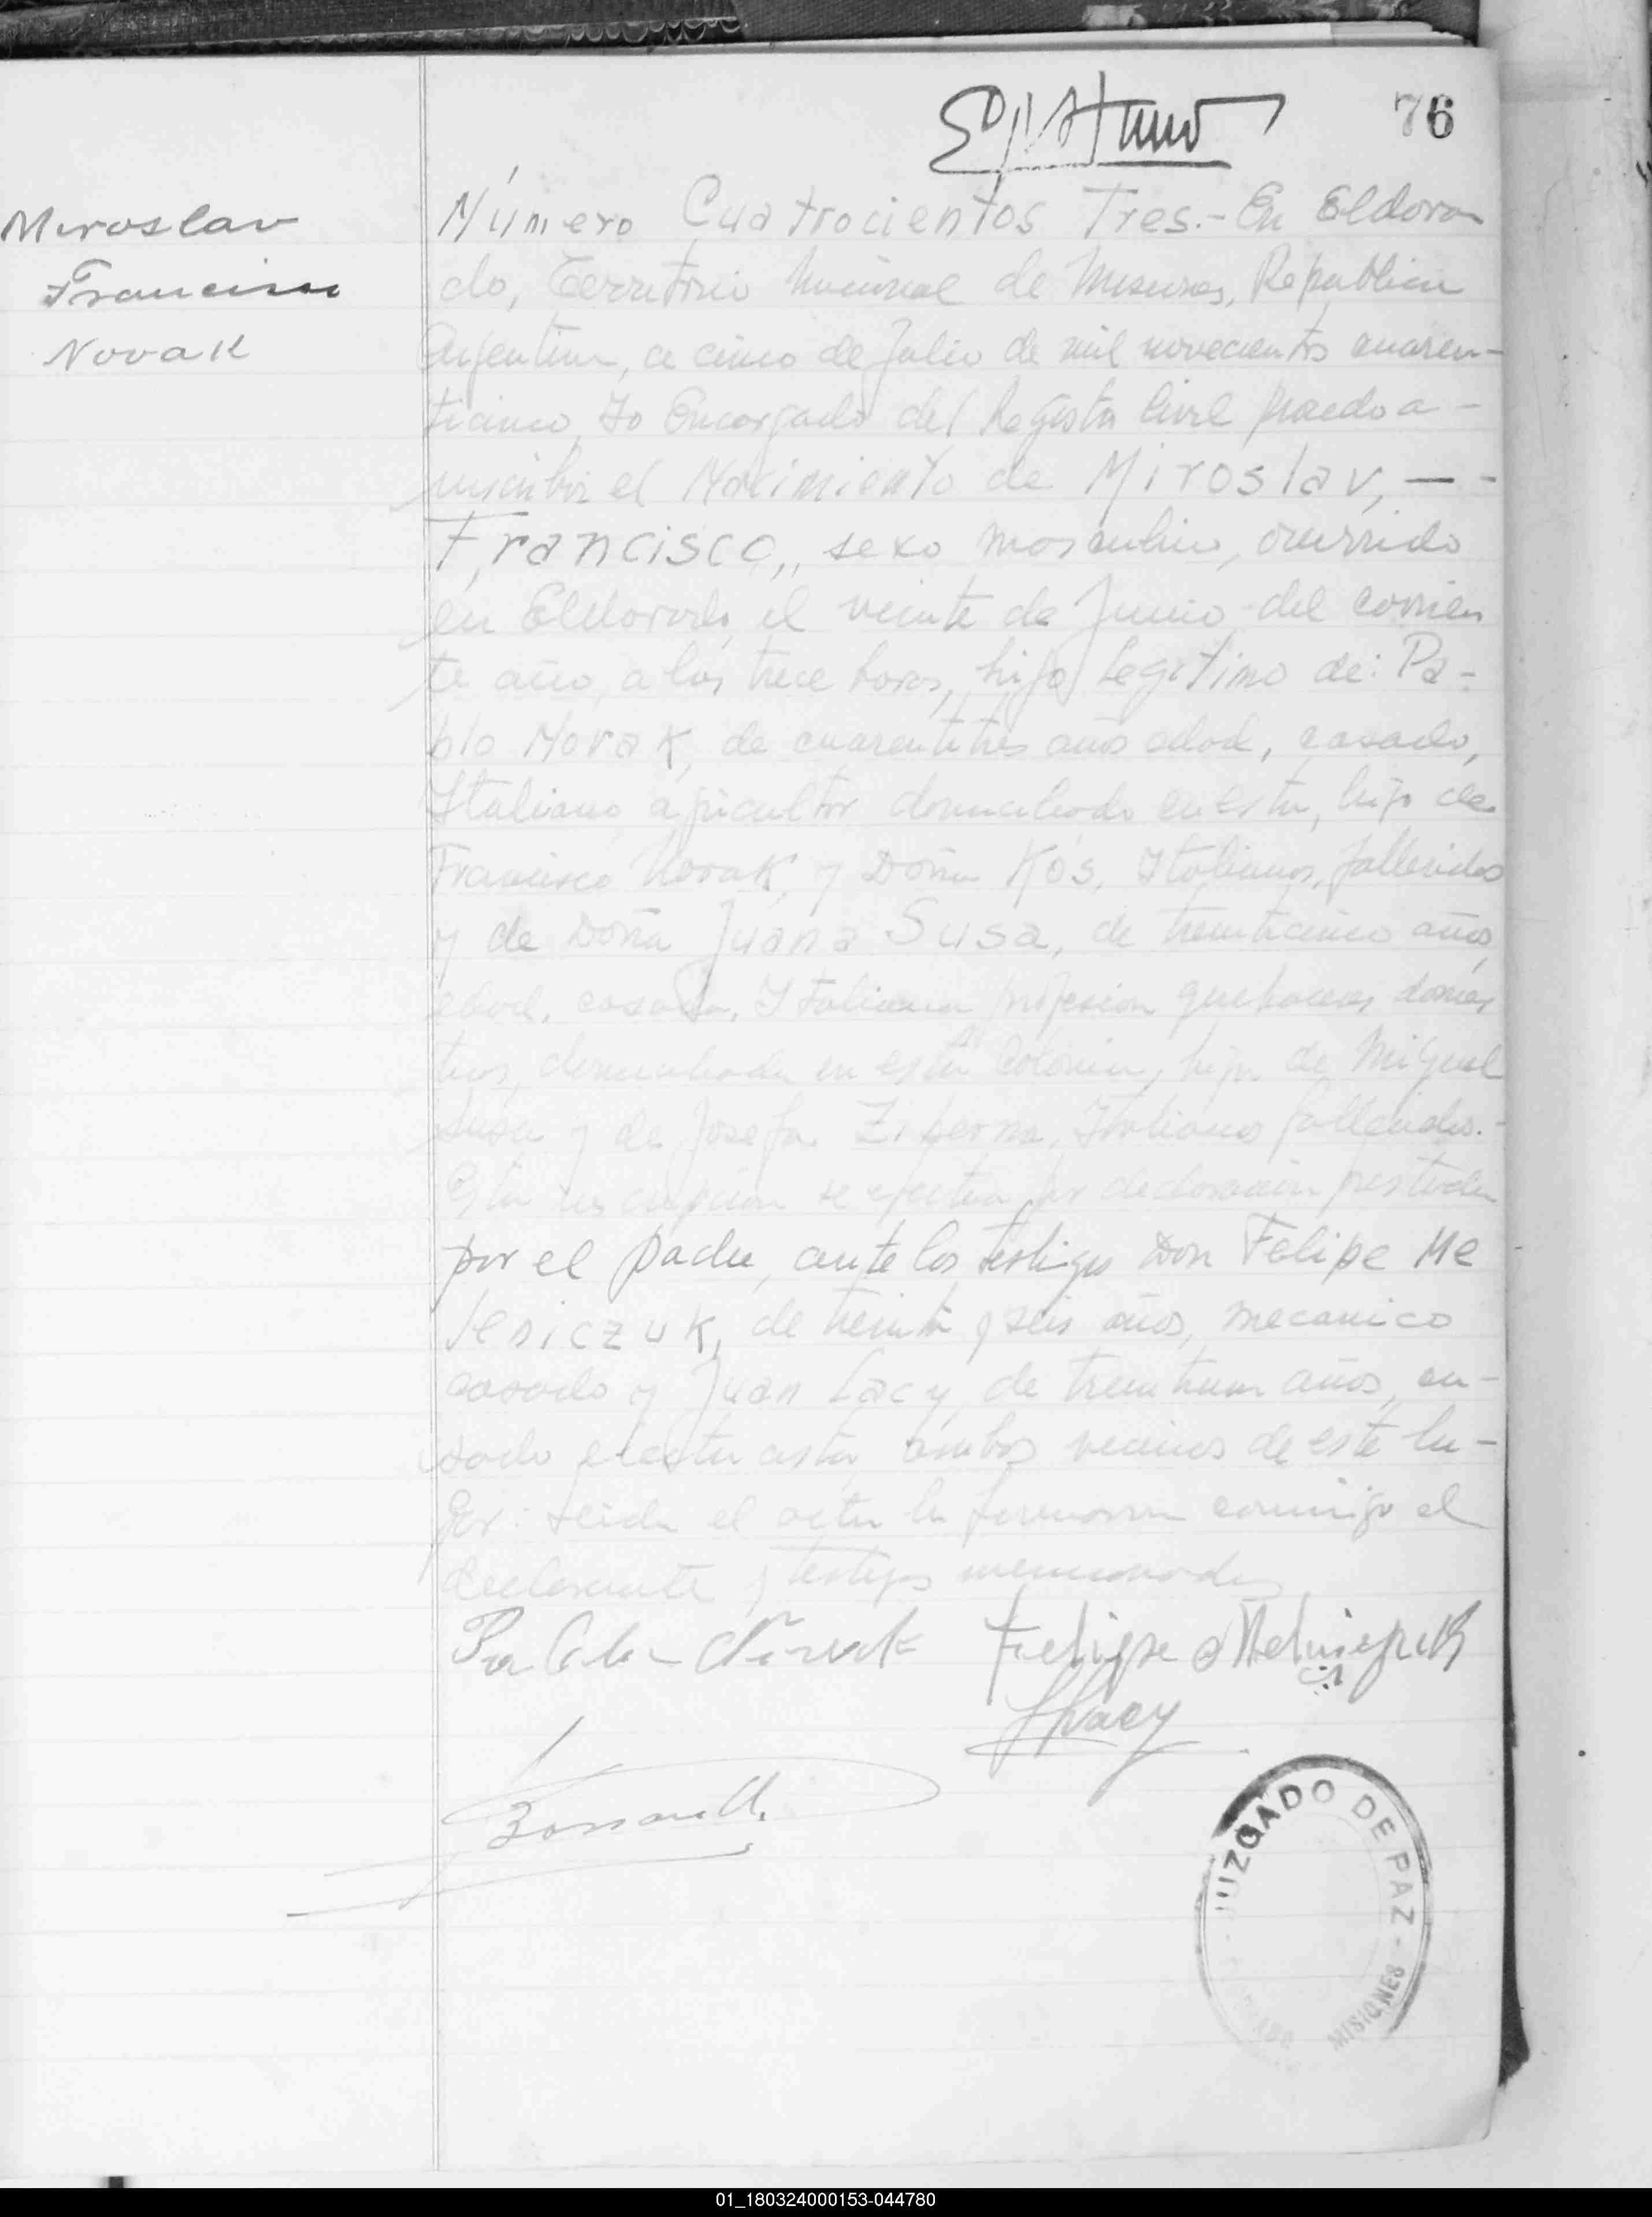 76
Miroslav
Francisco
Novak
Número Cuatrocientos Tres.- En Eldora
do, Territorio Nacional de Misiones, Republica
Argentina, a cinco de Julio de mil novecientos cuaren-
ticinco, Yo Encargado del Registro Civil procedo a -
inscribir el Nacimiento de Miroslav, — -
Francisco,, sexo masculino, ocurrido
en Eldorado, el veinte de Junio del corrien
te año, a las trece horas, hijo Legitimo de: Pa-
blo Novak, de cuarentitres años edad, casado,
Italiano, agricultor domiciliado en esta, hijo de
Francisco Novak, y Doña Kos, Italianos, fallecidos
y de Doña Juana Susa, de trenticinco años
edad, casada, Italiana profesion quehaceres domes
ticos, domiciliada en esta Colonia, hija de Miguel
Susa y de Josefa Ziberna, Italianos fallecidos.-
Esta inscripcion se efectua por declaracion prestada
por el padre, ante los testigos Don Felipe Me
lesiczuk, de treinta y seis años, mecanico
casado y Juan Lacy, de trentiun años, ca-
sado, ambos vecinos de este lu-
gar: Leida el acta la firmaron conmigo el
declarante y testigos mencionados
Felipe
JLacy
JUZGADO DE PAZ - MISIONES
01_180324000153-044780